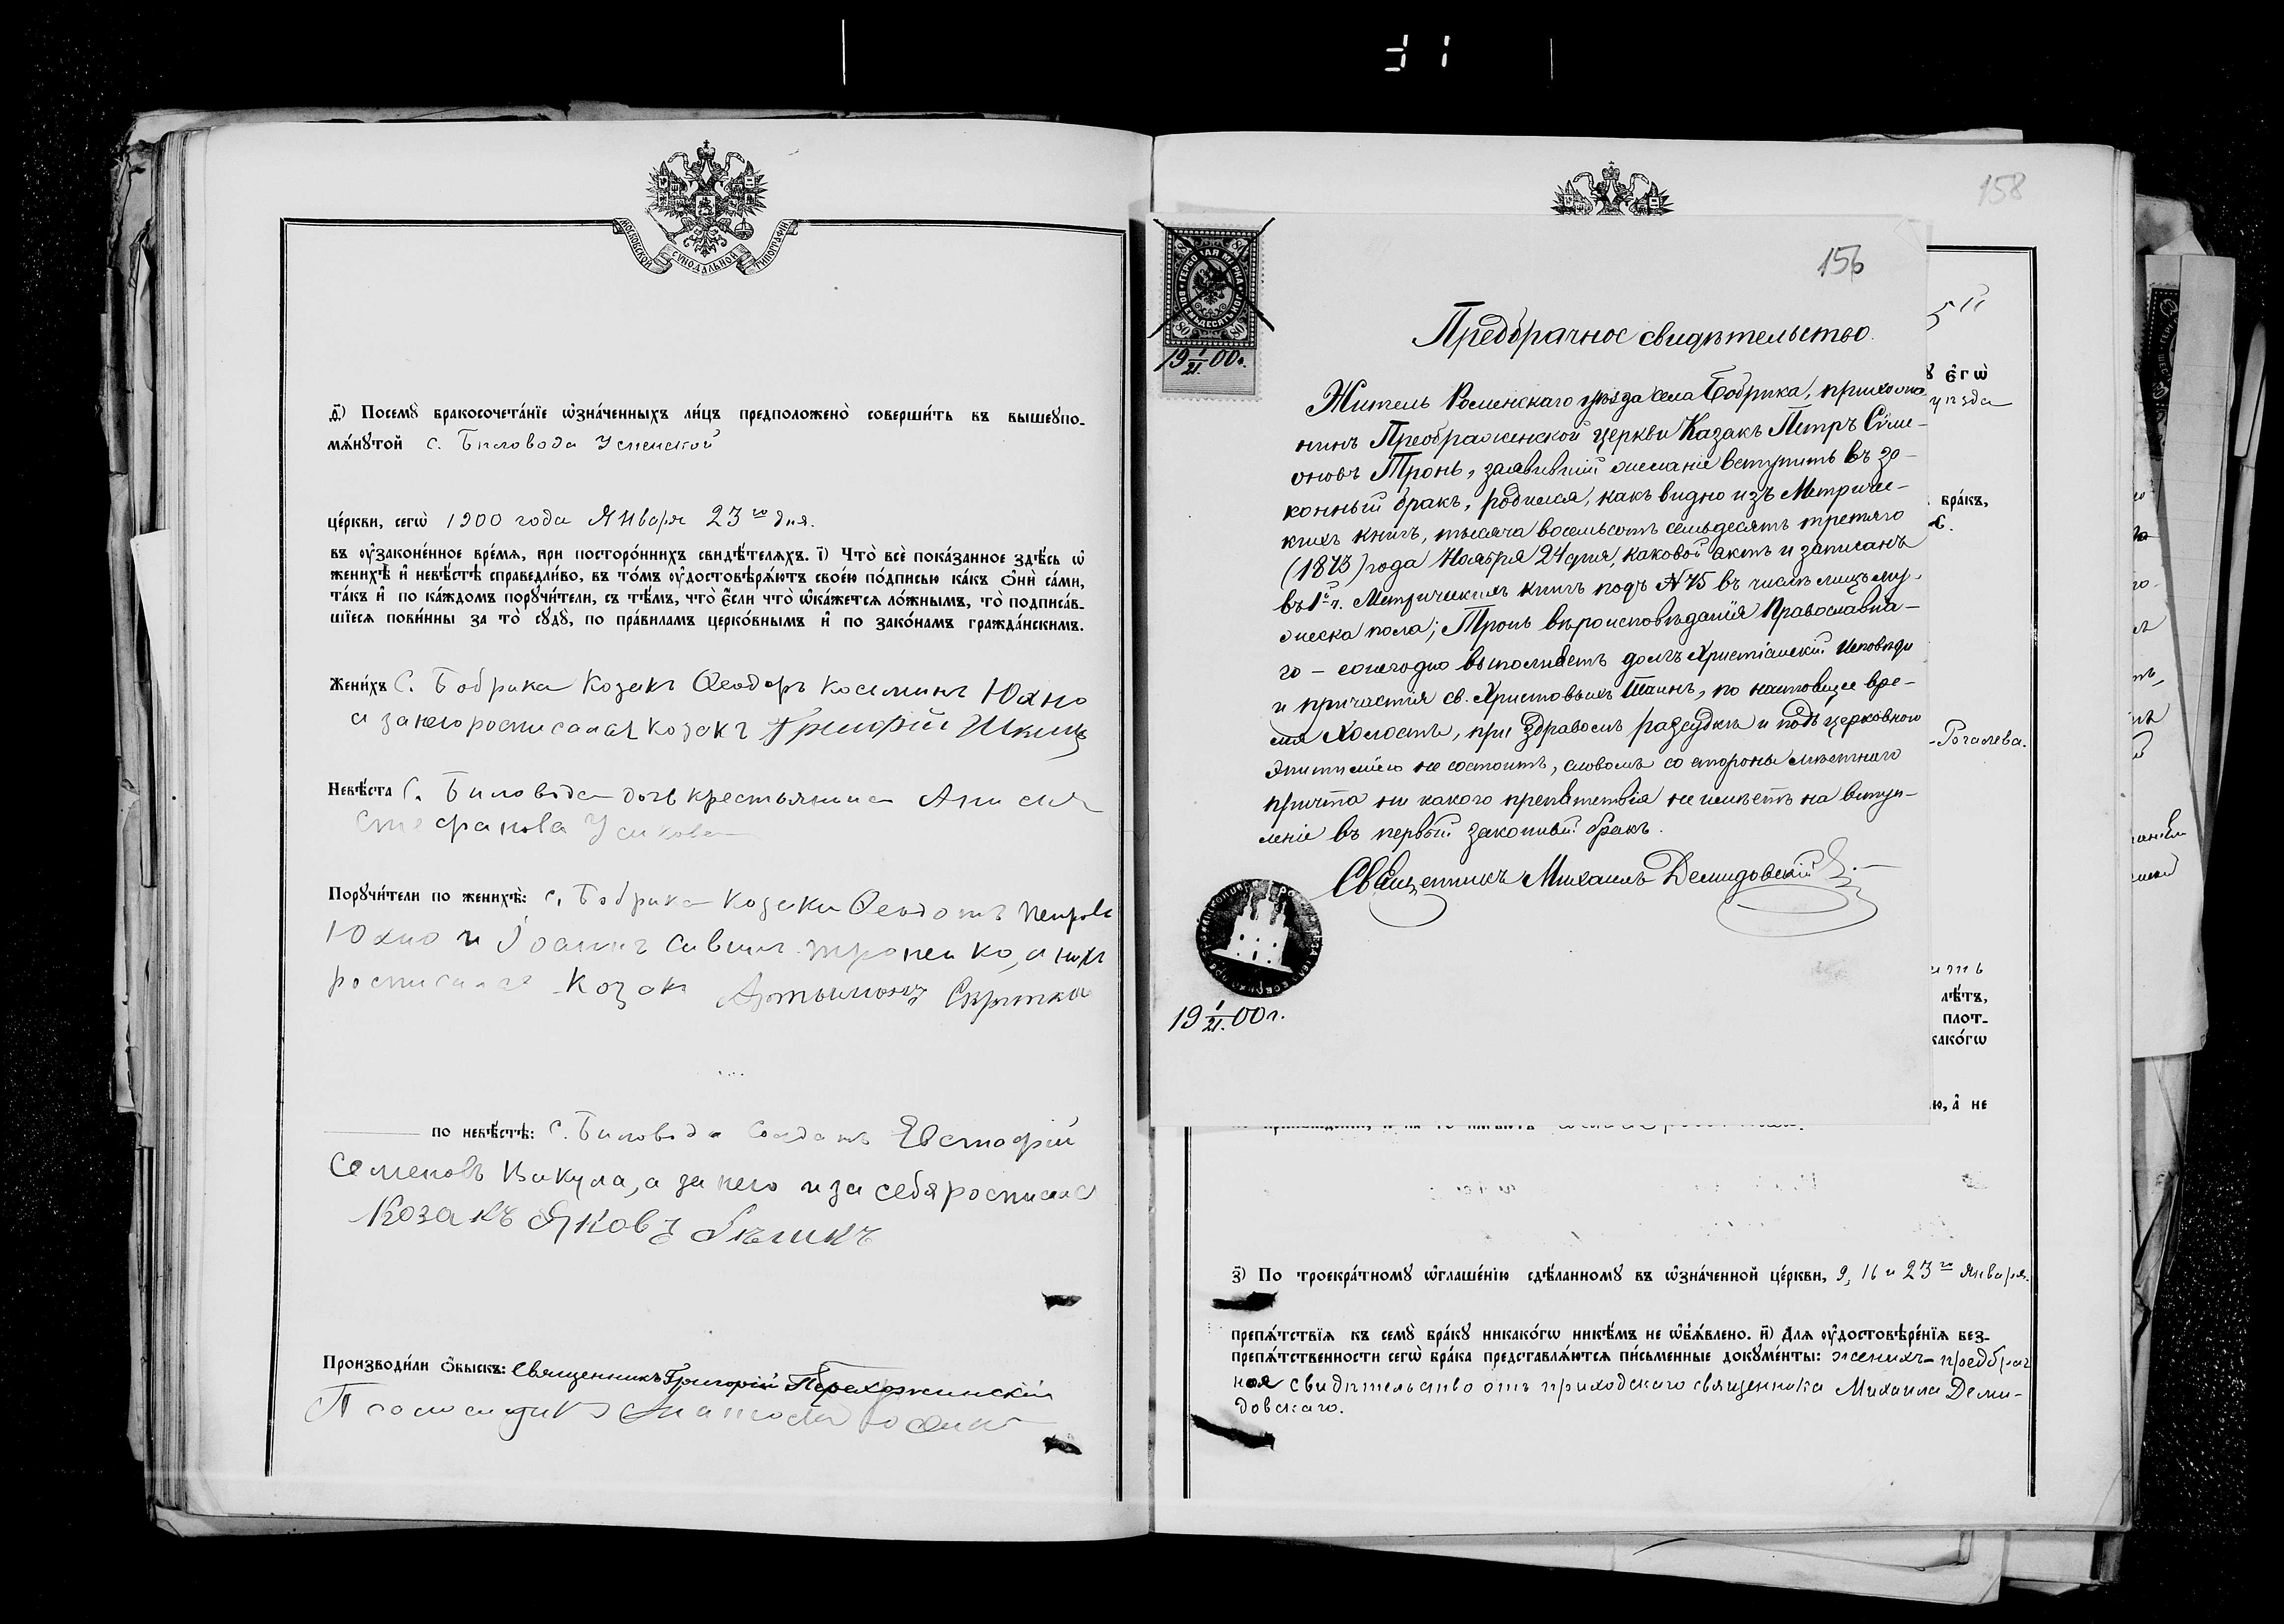 МОСКОВСКОЙ СУНОДАЛЬНОЙ ТИПОГРАФІИ
д҃і) Посемꙋ̀ бракосочета́нїе ѡ҆зна́ченныхъ ли́цъ предположено̀ соверши́ть въ вышеꙋпо-
мѧ́нꙋтой с. Биловода Успенской
це́ркви, сегѡ̀ 1900 года Января 23го дня.
въ ᲂу҆законе́нное вре́мѧ, при посторо́ннихъ свидѣ́телѧхъ. і҃) Что̀ всѐ пока́занное здѣ́сь ѡ҆
женихѣ̀ и҆ невѣ́стѣ справедли́во, въ то́мъ ᲂу҆достовѣрѧ́ютъ свое́ю по́дписью ка́къ ѻ҆нѝ са́ми,
та́къ и҆ по ка́ждомъ порꙋчи́тели, съ тѣ́мъ, что̀ є҆́сли что̀ ѡ҆ка́жетсѧ ло́жнымъ, то̀ подписа́в-
шїесѧ пови́нны за то̀ сꙋдꙋ̀, по пра́виламъ церко́внымъ и҆ по зако́намъ гражда́нскимъ.
Жени́хъ С. Бобрика Козакъ Ѳеодоръ Косминъ Юхно
а за него росписался козакъ Григорій
Невѣ́ста С. Биловода дочь крестьянина Анисія
Стефанова Усикова
Порꙋчи́тели по женихѣ̀: с. Бобрика козаки Ѳеодотъ Петровъ
Юхно и Іоаннъ Саввинъ Троненко, а нихъ
росписался Козакъ Артымонъ Скрипка
по невѣ́стѣ: С. Биловода Солдатъ Евстафій
Семеновъ Викула, а за него и за себя росписался
Козакъ Яковъ
Производи́ли ѻ҆́быскъ: Священникъ Григорій
Псаломщикъ
158
156
ГЕРБОВАЯ МАРКА ВОСЕМЬДЕСЯТЪ КОП.
80 80
19 1/21 00 г.
Предбрачное свидѣтельство.
Житель Роменскаго уѣзда села Бобрика, прихожа-
нинъ Преображенской церкви Казакъ Петръ Сѵме-
оновъ Тронь, заявившій желаніе вступить въ за-
конный бракъ, родился, какъ видно изъ Метриче-
кихъ книгъ, тысяча восемьсотъ семьдесятъ третяго
(1873) года Ноября 24 дня, каковой актъ и записанъ
въ 1й ч. Метрическихъ книгъ подъ №75 въ числѣ лицъ му-
жеска пола; Тронь вѣроисповѣданія Православна-
го – ежегодно выполняетъ долгъ Христіанскій Исповѣди
и причастія св. Христовыхъ Таинъ, по настоящее вре-
мя Холостъ, при здравомъ разсудкѣ и подъ церковною
эпитиміею не состоитъ, словомъ со стороны мѣстнаго
причта ни какого препятствія не имѣетъ на вступ-
леніе въ первый законный бракъ.
Священникъ Михаилъ Демидовскій
19 1/21 00 г.
є҆гѡ̀
уѣзда
бра́къ,
-Рогалева.
лѣ́тъ,
плот-
како́гѡ
ю, а҆ не
з҃) По троекра́тномꙋ ѡ҆глаше́нїю сдѣ́ланномꙋ въ ѡ҆зна́ченной це́ркви, 9, 16 и 23го Января.
препѧ́тствїѧ къ семꙋ̀ бра́кꙋ никако́гѡ никѣ́мъ не ѡ҆б̾ѧ́влено. и҃) Для ᲂу҆достовѣре́нїѧ без-
препѧ́тственности сегѡ̀ бра́ка представлѧ́ютсѧ пи́сьменные докꙋме́нты: женихъ – предбрач
ное свидѣтельство отъ приходскаго священника Михаила Деми-
довскаго.